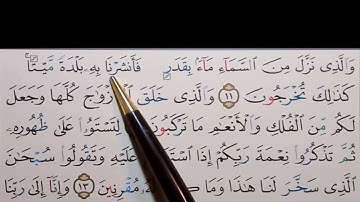 وَالَّذِي نَزَّلَ مِنَ السَّمَآءِ مَآءَۢ بِقَدَرٍ فَأَنشَرْنَا بِهِۦ بَلْدَةً مَّيْتًاۚ
كَذَٰلِكَ تُخْرَجُونَ ١١ وَالَّذِي خَلَقَ كُلَّهَا وَجَعَلَ
لَكُم مِّنَ الْفُلْكِ وَالْأَنْعَٰمِ مَا تَرْكَبُونَ لِتَسْتَوُۥا عَلَىٰ ظُهُورِهِۦ
ثُمَّ تَذْكُرُوا نِعْمَةَ رَبِّكُمْ إِذَا عَلَيْهِ وَتَقُولُوا سُبْحَٰنَ
الَّذِي سَخَّرَ لَنَا هَٰذَا وَمَا مُقْرِنِينَ ١٣ وَإِنَّآ إِلَىٰ رَبِّنَا